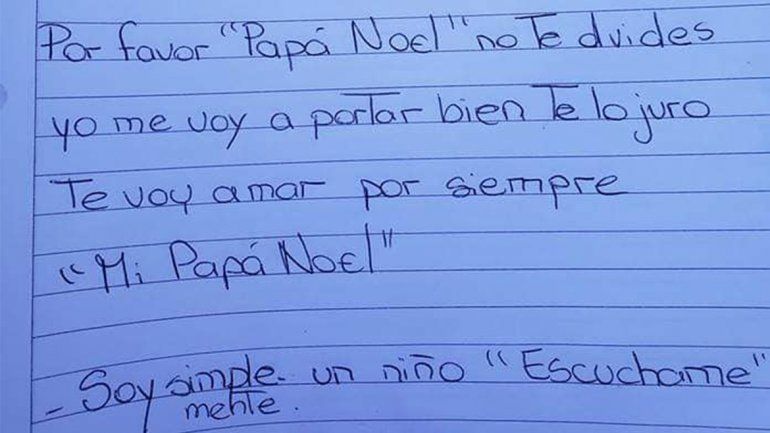 Por favor "Papá Noel" no Te dvides
yo me voy a portar bien Te lo juro
Te voy amar por siempre
"Mi Papá Noel"
- Soy simple. un niño "Escuchame"
mente.